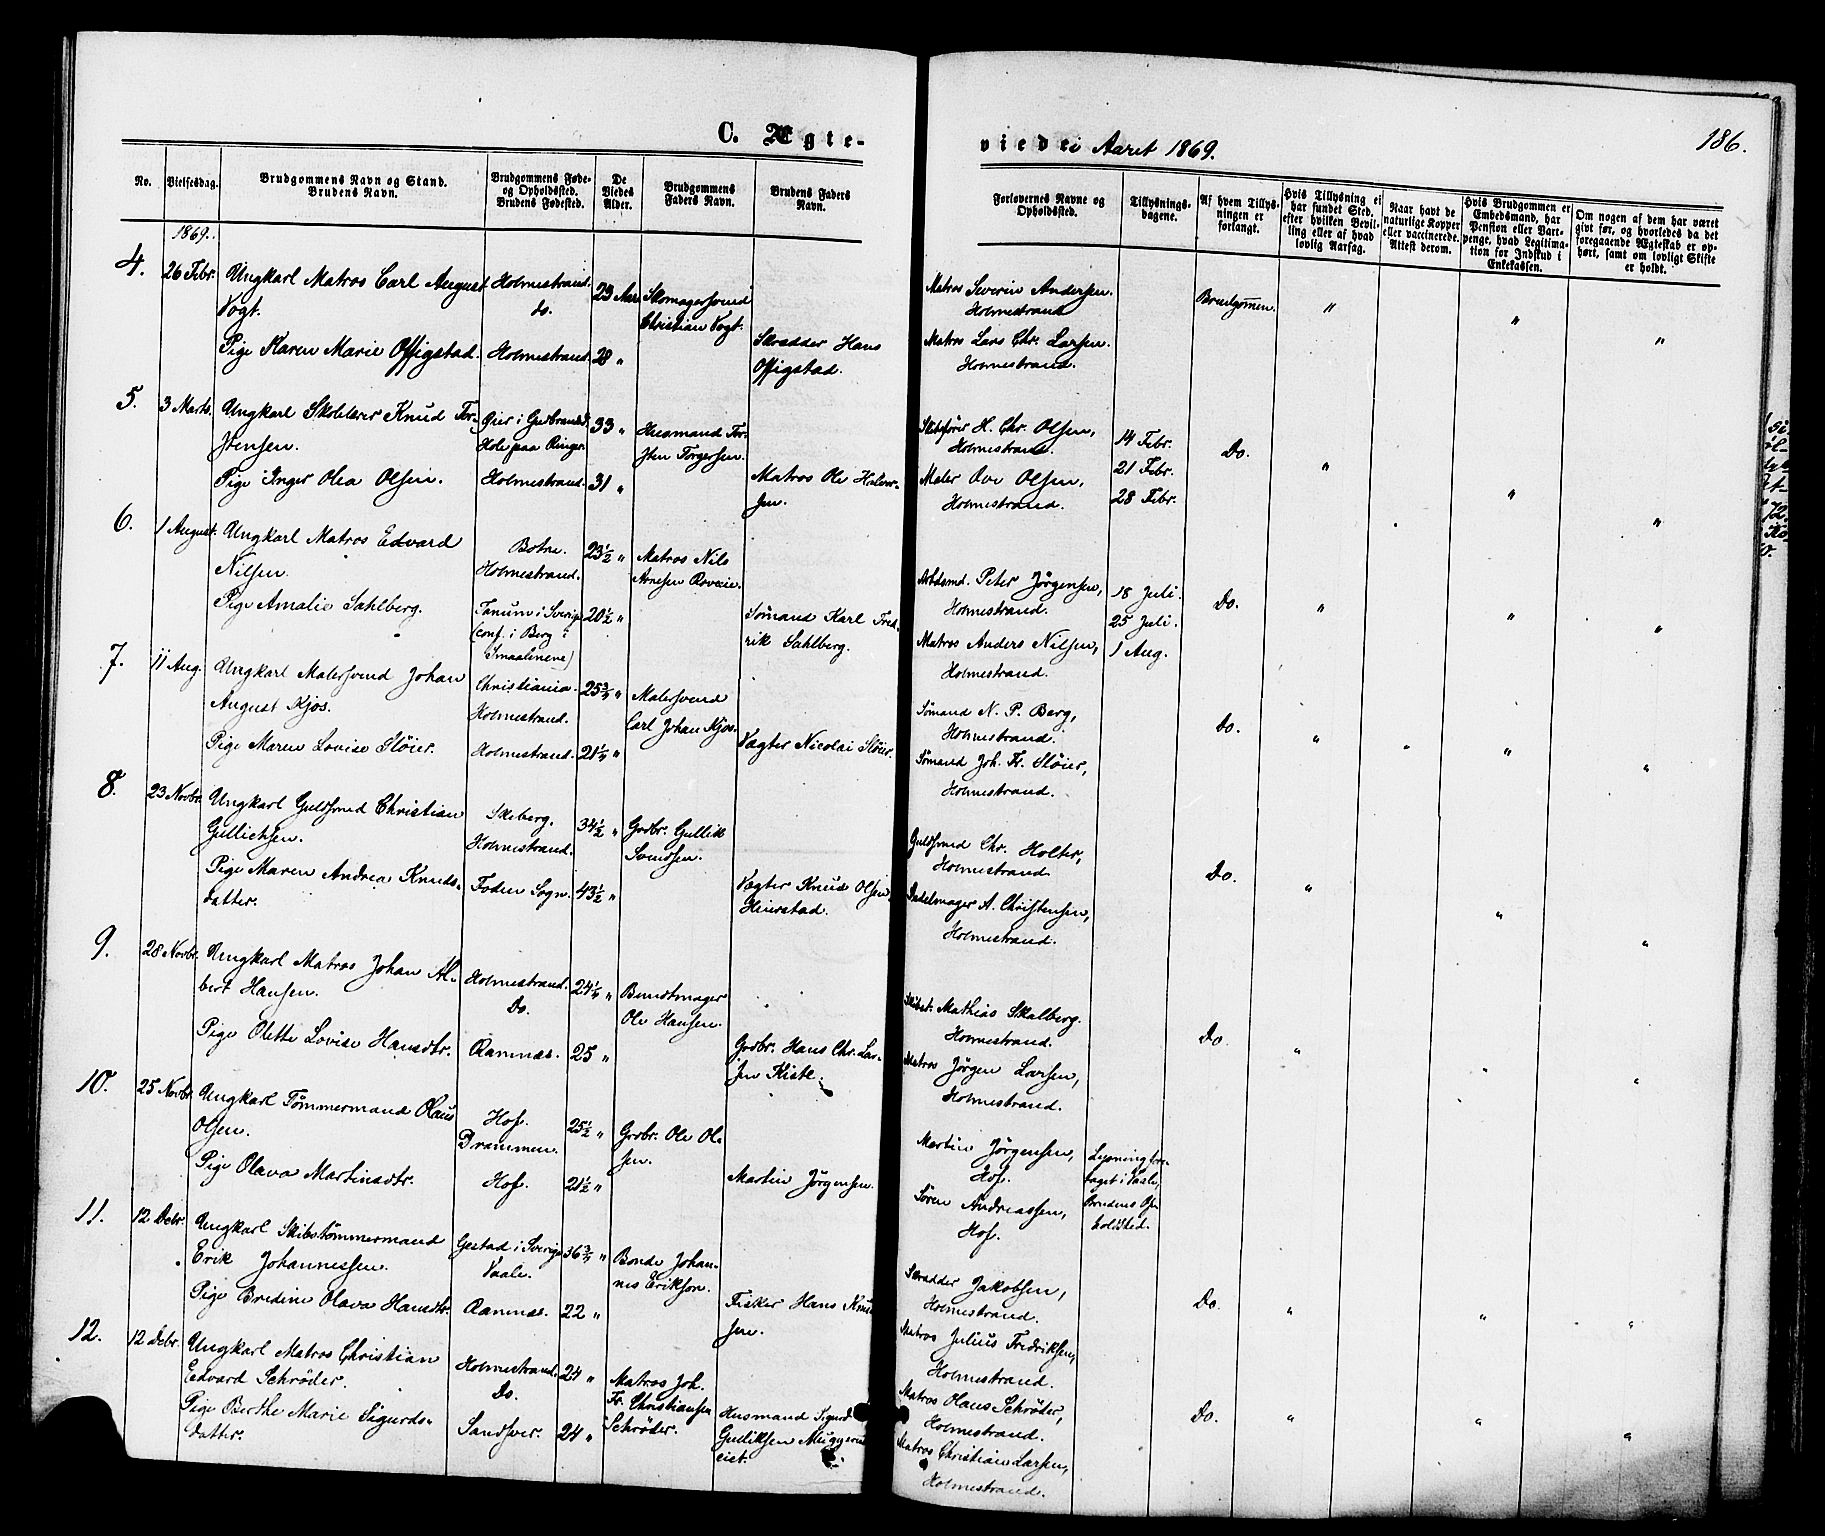 C. Ægte-
viede i Aaret 1869.
186.
No.
Vielsesdag.
Brudgommens Navn og Stand.
Brudens Navn.
Brudgommens Føde-
og Opholdsted.
Brudens Fødested.
De
Viedes
Alder.
Brudgommens
Faders Navn.
Brudens Faders
Navn.
Forlovernes Navne og
Opholdssted.
Tillysnings-
dagene.
Af hvem Tillys-
ningen er
forlangt.
Hvis Tillysning ei
har fundet Sted,
efter hvilken Bevil-
ling eller af hvad
lovlig Aarsag.
Naar havt de
naturlige Kopper
eller vaccinerede.
Attest derom.
Hvis Brudgommen er
Embedsmand, har
Pension eller Vart-
penge, hvad Legitima-
tion for Indskud i
Enkekassen.
Om nogen af dem har været
givt før, og hvorledes da det
foregaaende Ægteskab er op-
hørt, samt om lovligt Skifte
er holdt.
1869.
4.
26 Febr.
Ungkarl Matros Carl August
Vogt.
Holmestrand.
do.
23 Aar
Skomagersvend
Christian Vogt.
Matros Severin Andersen.
Holmestrand
Brudgommen.
"
"
"
Pige Karen Marie Offigstad.
Holmestrand.
28 "
Skrædder Hans
Offigstad.
Matros Lars Chr. Larsen.
Holmestrand.
5.
3 Marts.
Ungkarl Skolelærer Knud Tor-
stensen.
Hole paa Ringer.
33 "
Husmand Tor-
sten Torgersen.
Skibsfører H. Chr. Olsen,
Holmestrand.
14 Febr.
21 Febr.
28 Febr.
Do.
"
"
"
Pige Inger Olea Olsen.
Holmestrand.
31 "
Matros Ole Halvor-
sen.
Maler Ove Olsen,
Holmestrand.
6.
1 August.
Ungkarl Matros Edvard
Nilsen.
Botne.
Holmestrand.
23½ "
Matros Nils
Arnesen
Arbdsmd. Peter Jørgensen,
Holmestrand.
18 Juli.
25 Juli.
1 Aug.
Do.
"
"
"
Pige Amalie Sahlberg.
Tanum i Sverige
(conf. i Berg i
Smaalenene)
20½ "
Sømand Karl Fred-
rik Sahlberg.
Matros Anders Nilsen,
Holmestrand.
7.
11 Aug.
Ungkarl Malersvend Johan
August Kjos.
Christiania.
Holmestrand.
25¾ "
Malersvend
Carl Johan Kjos.
Sømand N. P. Berg,
Holmestrand.
Do.
"
"
"
"
Pige Maren Lovise Sløier.
Holmestrand.
21¼ "
Vægter Nicolai Sløier.
Sømand Joh. Fr. Sløier,
Holmestrand.
8.
23 Novbr.
Ungkarl Guldsmed Christian
Gullichsen.
Skeberg.
Holmestrand.
34½ "
Grdbr. Gullik
Svendsen.
Guldsmed Chr. Holter,
Holmestrand
Do.
"
"
"
Pige Maren Andrea Knuds-
datter.
Foden Sogn.
43½ "
Vægter Knud Olsen
Heierstad.
Sadelmager A. Christensen,
Holmestrand.
9.
28 Novbr.
Ungkarl Matros Johan Al-
bert Hansen.
Holmestrand.
Do.
24¼ "
Bundtmager
Ole Hansen.
Mathias Skalberg.
Holmestrand.
Do.
"
"
"
Pige Olette Lovise Hansdtr.
Ramnæs.
25 "
Grdbr. Hans Chr. Lar-
sen Kiste.
Matros Jørgen Larsen,
Holmestrand.
10.
25 Novbr.
Ungkarl Tømmermand Olaus
Olsen.
Hof.
Drammen.
25½ "
Grdbr. Ole Ol-
sen.
Martin Jørgensen,
Hof.
Lysning fore-
taget i Vaale,
Brudens Op-
holdsted.
Pige Olava Martinsdtr.
Hof.
21½ "
Martin Jørgensen.
Søren Andreassen,
Hof.
11.
12 Debr.
Ungkarl Skibstømmermand
Erik Johannessen.
Gestad i Sverige
Vaale.
36¾ "
Bonde Johan-
nes Erikson.
Skrædder Jakobsen,
Holmestrand.
Do.
"
"
"
Pige Bredine Olava Hansdtr.
Ramnæs.
22 "
Fisker Hans Knud-
sen.
Matros Julius Fredriksen,
Holmestrand.
12.
12 Debr.
Ungkarl Matros Christian
Edvard Schrøder.
Holmestrand.
Do.
24 "
Matros Joh.
Fr. Christiansen
Schrøder.
Matros Olaus Schrøder,
Holmestrand.
Do.
"
"
"
Pige Berthe Marie Sigurds-
datter.
Sandsver.
24 "
Husmand Sigurd
Gulliksen
Matros Christian Larsen,
Holmestrand.